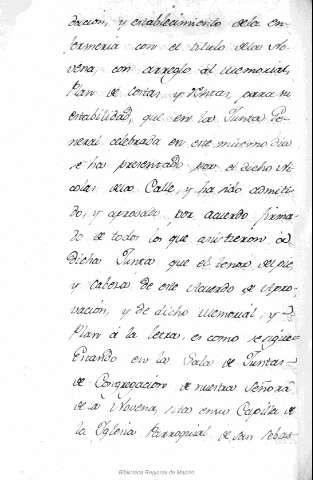 dacion, y establecimiento dela en-
fermeria con el titulo dela No-
vena, con arreglo al memorial,
Plan de costas, y Rentas, para su
estabilidad, que en la Junta Ge-
neral celebrada en este mismo dia
se ha presentado por el dicho Ni-
colas dela Calle, y ha sido admiti-
do, y aprovado por acuerdo firma-
do de todos los que asistieron à
dicha Junta que el tenor del pie
y cabeza de este Acuerdo de Apro-
vación, y de dicho memorial, y
Plan á la letra, es como se sigue
Estando en la Sala de Juntas
de Congregación de nuestra Señora
de la Novena, sita en su Capilla de
la Iglesia Parroquial de San Sebas-
Biblioteca Regional de Madrid